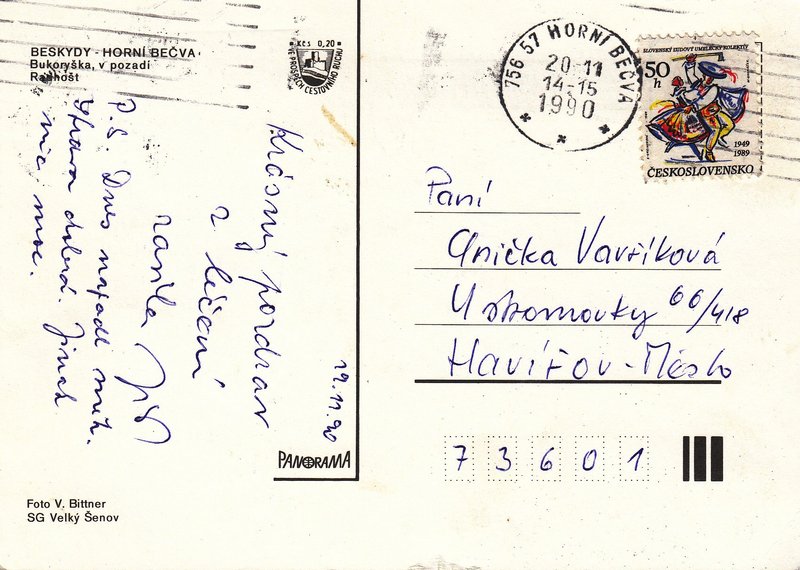 BESKYDY - HORNÍ BEČVA
Bukoryška, v pozadí
Radhošt
Kčs 0,20
VE PROSPĚCH CESTOVNÍHO RUCHU
756 57 HORNÍ BEČVA
20-11
14-15
1990
SLOVENSKÝ ĽUDOVÝ UMELECKÝ KOLEKTÍV
50
h
1949
1989
ČESKOSLOVENSKO
19.11.90
Krásný pozdrav
z léčení
zasílá
P.S. Dnes napadl sníh.
Strava dobrá. Jinak
nic moc.
Paní
Anička Vavříková
U stromovky 66/418
Havířov - Město
73601
PANORAMA
Foto V. Bittner
SG Velký Šenov